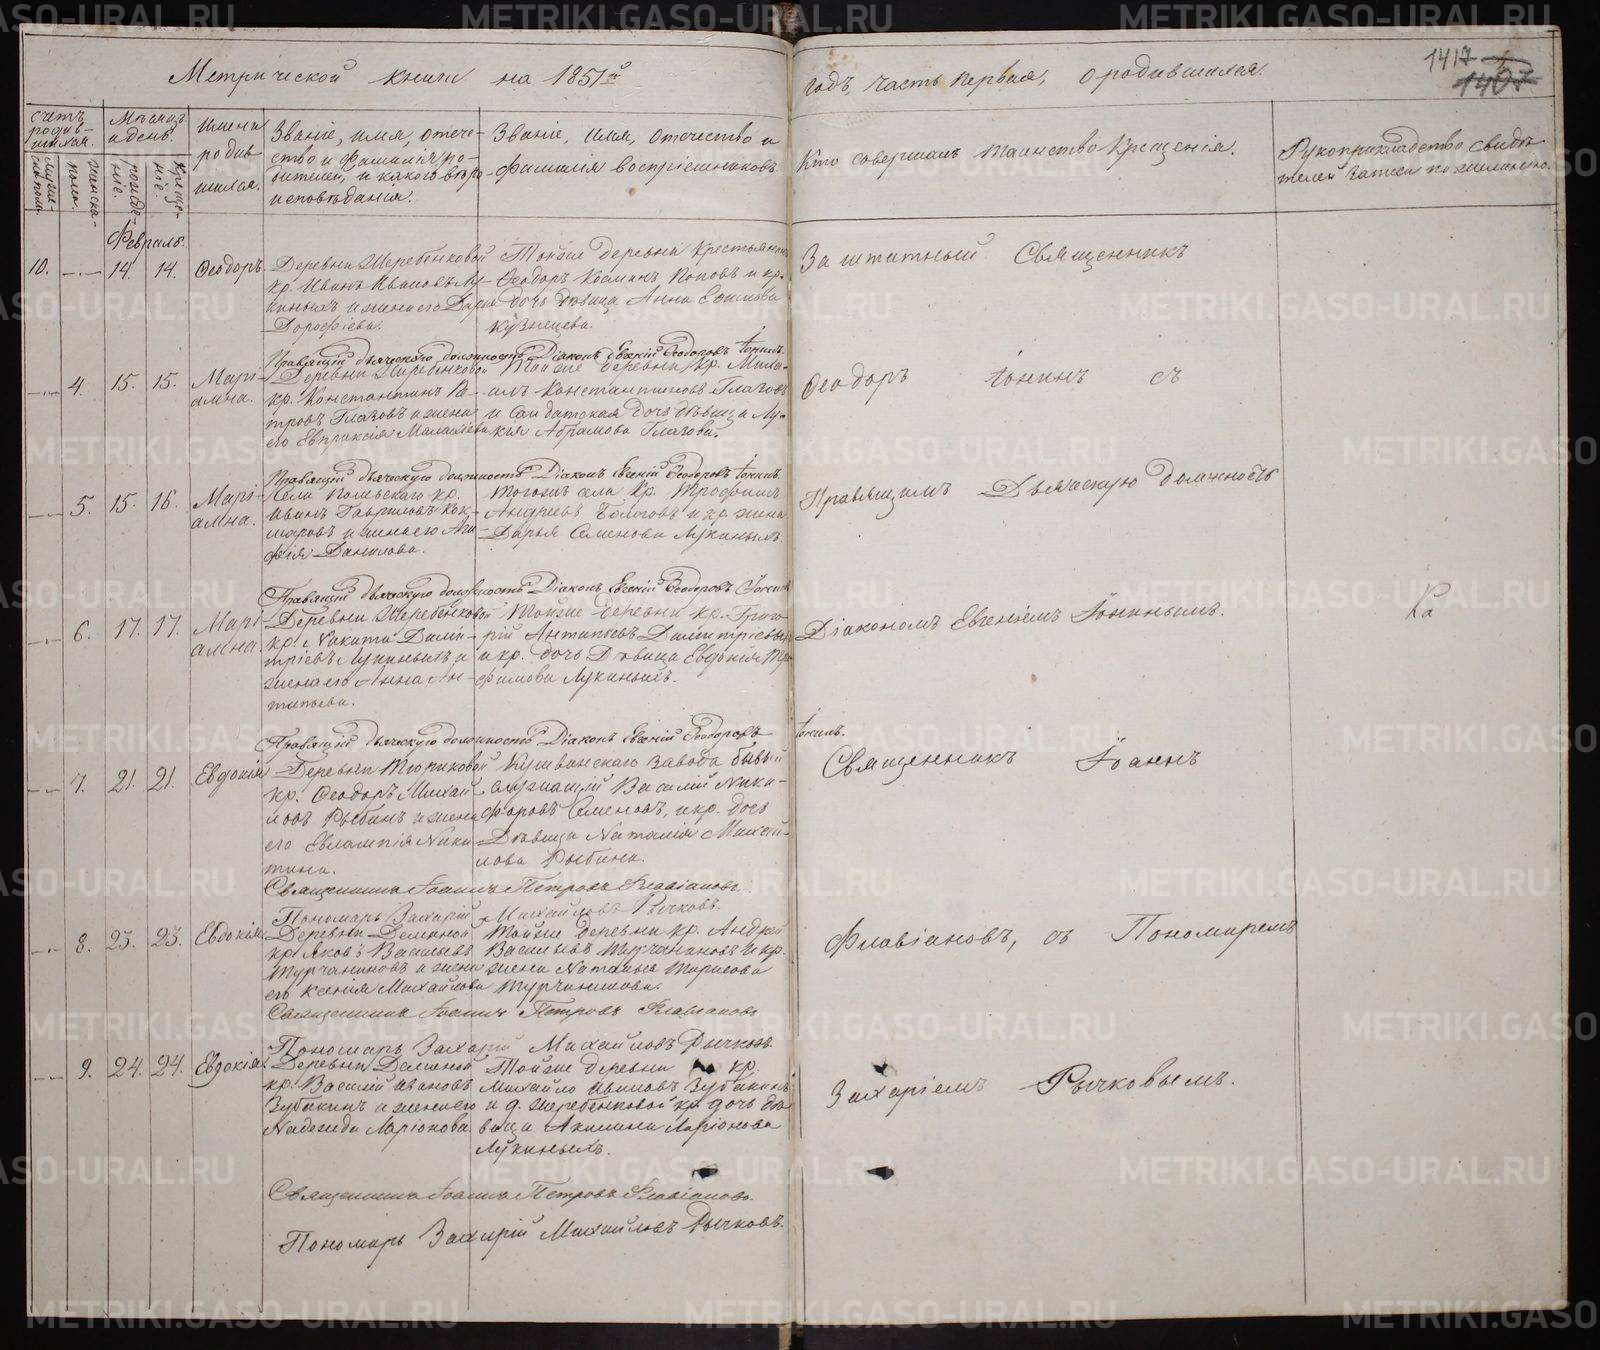 Метрической книги на 1851й
годъ, часть первая, о родившихся.
1417
1407
Счетъ родив-шихся.
Мужеска пола.
Женска-пола.
Мѣсяцъ и день.
рожде-нiе.
Креще-нiе.
Имена родив шихся.
Званiе, имя, отече-
ство и фамилiя ро-
дителей, и какого вѣро
исповѣданiя.
Званiе, имя, отечество и
фамилiя воспрiемниковъ.
Кто совершалъ таинство Крещенiя.
Рукоприкладство свидѣ
телей записи по желанiю.
Февраль.
10. 14. 14. Ѳеодоръ.
Деревни Жеребенковой
кр. Иванъ Ивановъ Лу-
киныхъ и жена его Дарiя
Дорофѣева.
Тойже деревни крестьянинъ
Ѳеодоръ Косминъ Поповъ и кр.
дочь дѣвица Анна
Кузнецова.
Заштатный Священникъ
Правящiй дьяческую должность Дiаконъ Евгенiй Ѳеодоровъ Iонинъ.
4. 15. 15. Марi-
амна.
Деревни Жеребенковой
кр. Константинъ Пе-
тровъ Глазовъ и жена
его Евпраксiя Малахiева
Тойже деревни кр. Миха-
илъ Константиновъ Глазовъ
и Солдатская дочь дѣвица Лу-
кiя Абрамова Глазова.
Ѳеодоръ Iонинъ съ
Правящiй дьяческую должность Дiаконъ Евгенiй Ѳеодоровъ Iонинъ.
5. 15. 16. Марi-
амна.
Села кр.
Иванъ Гавриловъ Кок-
шаровъ и жена его Ага
фiя Данилова.
Тогожъ села кр. Трофимъ
Андреевъ Бологовъ и кр. жена
Дарья Семенова Лукиныхъ.
Правящимъ Дьяческую должность
Правящiй дьяческую должность Дiаконъ Евгенiй Ѳеодоровъ Iонинъ
6. 17. 17. Марi
амна.
Деревни Жеребенковой
кр. Никита Дими-
трiевъ Лукиныхъ и
жена его Анна Ан-
типьева.
Тойже деревни кр. Григо-
рiй Антипьевъ Димитрiевыхъ
и кр. дочь Дѣвица Евдокiя Тро
фимова Лукиныхъ.
Дiакономъ Евгенiемъ Iонинымъ.
Ка
Правящiй дьяческую должность Дiаконъ Евгенiй Ѳеодоровъ Iонинъ.
7. 21. 21. Евдокiя
Деревни Тюриковой
кр. Ѳеодоръ Михай
ловъ Рыбинъ и жена
его Евлампiя Ники-
тина.
Кушвинскаго завода бывый
служащiй Василiй Ники-
форовъ Семеновъ, и кр. дочь
Дѣвица Наталiя Михай-
лова Рыбина.
Священникъ Iоаннъ
Священникъ Iоаннъ Петровъ Флавiановъ.
Пономарь Захарiй Михайловъ Рычковъ.
8. 23. 23. Евдокiя
Деревни Деминой
кр. Яковъ Васильевъ
Турчаниновъ и жена
его Ксенiя Михайлова
Тойже деревни кр. Андрей
Васильевъ Турчаниновъ и кр.
жена Наталья
Турчанинова.
Флавiановъ, съ Пономаремъ
Священникъ Iоаннъ Петровъ Флавiановъ
Пономарь Захарiй Михайловъ Рычковъ.
9. 24. 24. Евдокiя
Деревни Деминой
кр. Василiй Ивановъ
Зубакинъ и жена его
Надежда Ларiонова.
Тойже деревни кр.
Михайло Ивановъ Зубакинъ
и д. Жеребенковой кр. дочь дѣ
вица Акилина Ларiонова
Лукиныхъ.
Захарiемъ Рычковымъ.
Священникъ Iоаннъ Петровъ Флавiановъ.
Пономарь Захарiй Михайловъ Рычковъ.
METRIKI.GASO-URAL.RU